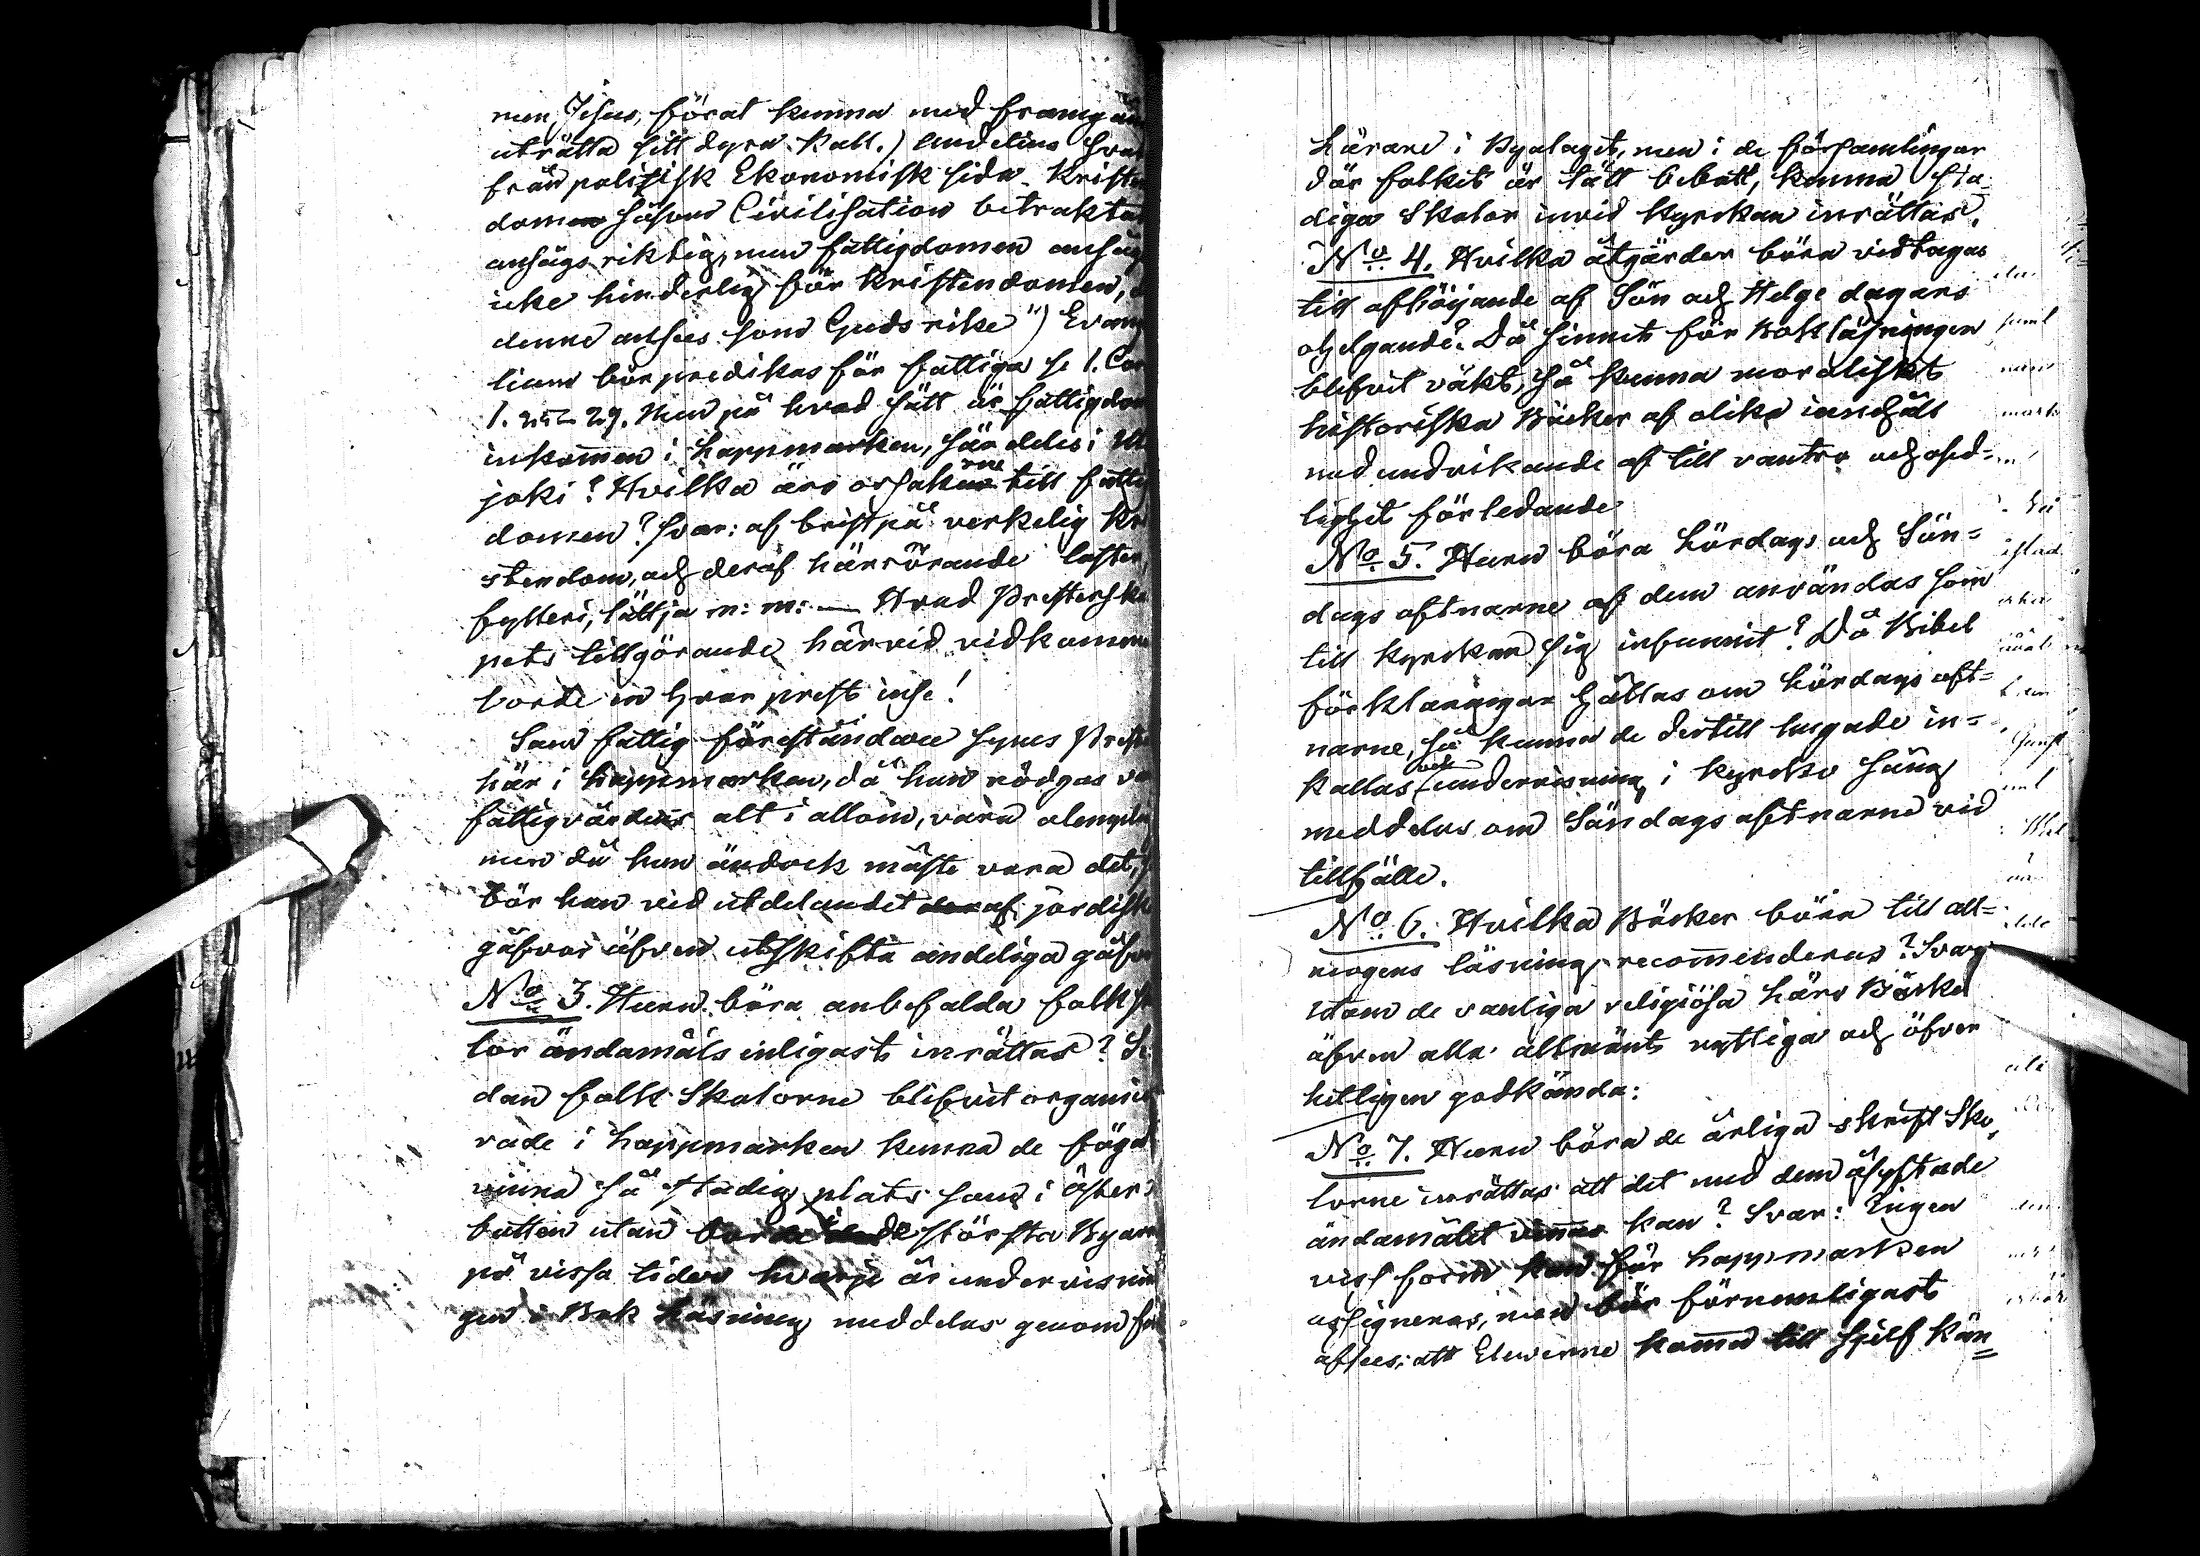 men, Jesus, förat kunna med framgån
uträtta sitt dyra kall.) Andelius svar
från politisk Ekonomisk sida. Kriste
domen såsom Civilisation betraktad
ansågs riktig, men fattigdomen anság
icke hinderlig för Kristendomen, 
denne anses som Guds rike") Evang
lium bör predikas för fattiga se 1. Cor
1. 25-29. Men på hvad sätt är fattigdom
inkommen i Lappmarken, särdeles i Ut
joki? Hvilka äro orsakerne till fattig
domen? Svar: af brist på verkelig Kri
stendom, och deraf härrörande laster,
fylleri, lättja m: m: — Hvad Presterska
pets tillgörande härvid vidkomme
torde en hvar prest inse!
Som fattig föreståndare synes Prest
här i Lappmarken, då han nödgas va
fattigvårdens alt i allom, vara olemplig
men då han ändock måste vara det,
bör han vid utdelandet af jordiska
gåfvor äfven utskifta andeliga gåfvo
No 3. Huru böra anbefalda folksko
lor ändamåls enligast inrättas? Se
dan folk Skolorne blifvit organise
rade i Lappmarken kunna de föga
vinna så stadig plats som i Öster
botten utan i de största Byar
på vissa tider hvarje år undervisnin
gen i Bok Läsning meddelas genom
Lärare i Byalaget, men i de församlingar
där folket är tätt bebott, kunna sta
diga Skolor invid kyrckan inrättas.
No 4. Hvilka åtgärder böra vidtagas
till afböjande af Sön och Helge dagars
ohelgande? Då sinnet för Bokläsningen
blifvit väkt, så kunna moraliskt
historiska Böcker af olika innehåll
med undvikande af till vantro och osed=
lighet förledande
No 5. Huru böra Lördags och Sön=
dags aftnarne af dem användas som
till kyrckan sig infunnit? Då Bibel
förklaringar hållas om Lördags aft=
narne, så kunna de dertill hugade in=
kallas och undervisning i kyrcko sång
meddelas om Söndags aftnarne vid
tillfälle.
No 6. Hvilka Böcker böra till all=
mogens läsning recommenderas? Svar
utom de vanliga religiösa läro Böcker
äfven alla allmänt nyttiga och öfver
hetligen godkända:
No 7. Huru böra de årliga skrift Sko
lorne inrättas att det med dem åsyftade
ändamålet vinnas kan? Svar: Ingen
viss form kan för Lappmarken
assigneras, men bör förnemligast
afses: att Eleverne komma till sjelf kän=